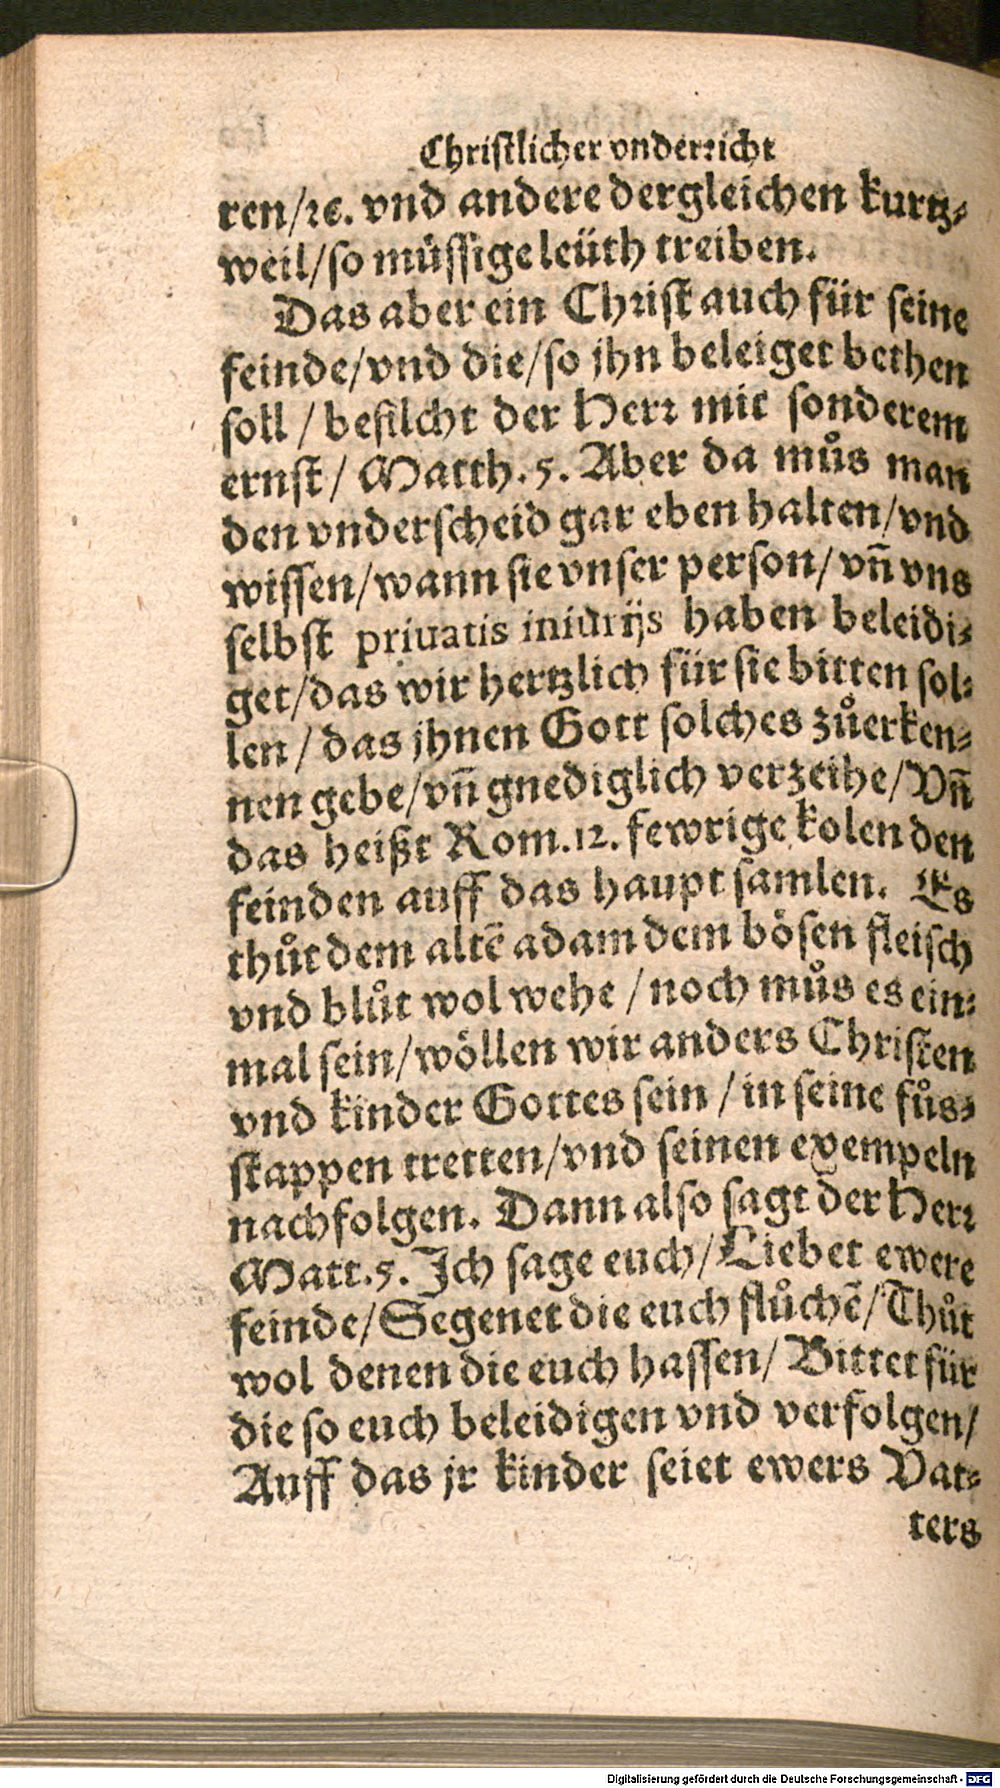 Christlicher vnderricht
ren/ꝛc. vnd andere dergleichen kurtz⸗
weil/so müssige leüth treiben.
Das aber ein Christ auch für seine
feinde/vnd die/so jhn beleiget bethen
soll / befilcht der Herr mit sonderem
ernst/ Matth. 5. Aber da muͦs man
den vnderscheid gar eben halten/vnd
wissen/wann sie vnser person/vñ vns
selbst priuatis iniurijs haben beleidi⸗
get/das wir hertzlich für sie bitten sol⸗
len / das jhnen Gott solches zuͦerken⸗
nen gebe/vñ gnediglich verzeihe/Vñ
das heißt Rom.12. fewrige kolen den
feinden auff das haupt samlen. Es
thuͦt dem altẽ adam dem bösen fleisch
vnd bluͦt wol wehe / noch muͦs es ein⸗
mal sein/wöllen wir anders Christen
vnd kinder Gottes sein / in seine fuͦs⸗
stappen tretten/vnd seinen exempeln
nachfolgen. Dann also sagt der Herr
Matt.5. Ich sage euch/Liebet ewere
feinde/Segenet die euch fluͦchẽ/Thuͦt
wol denen die euch hassen/ Bittet für
die so euch beleidigen vnd verfolgen/
Auff das jr kinder seiet ewers Vat⸗
ters
Digitalisierung gefördert durch die Deutsche Forschungsgemeinschaft - DFG